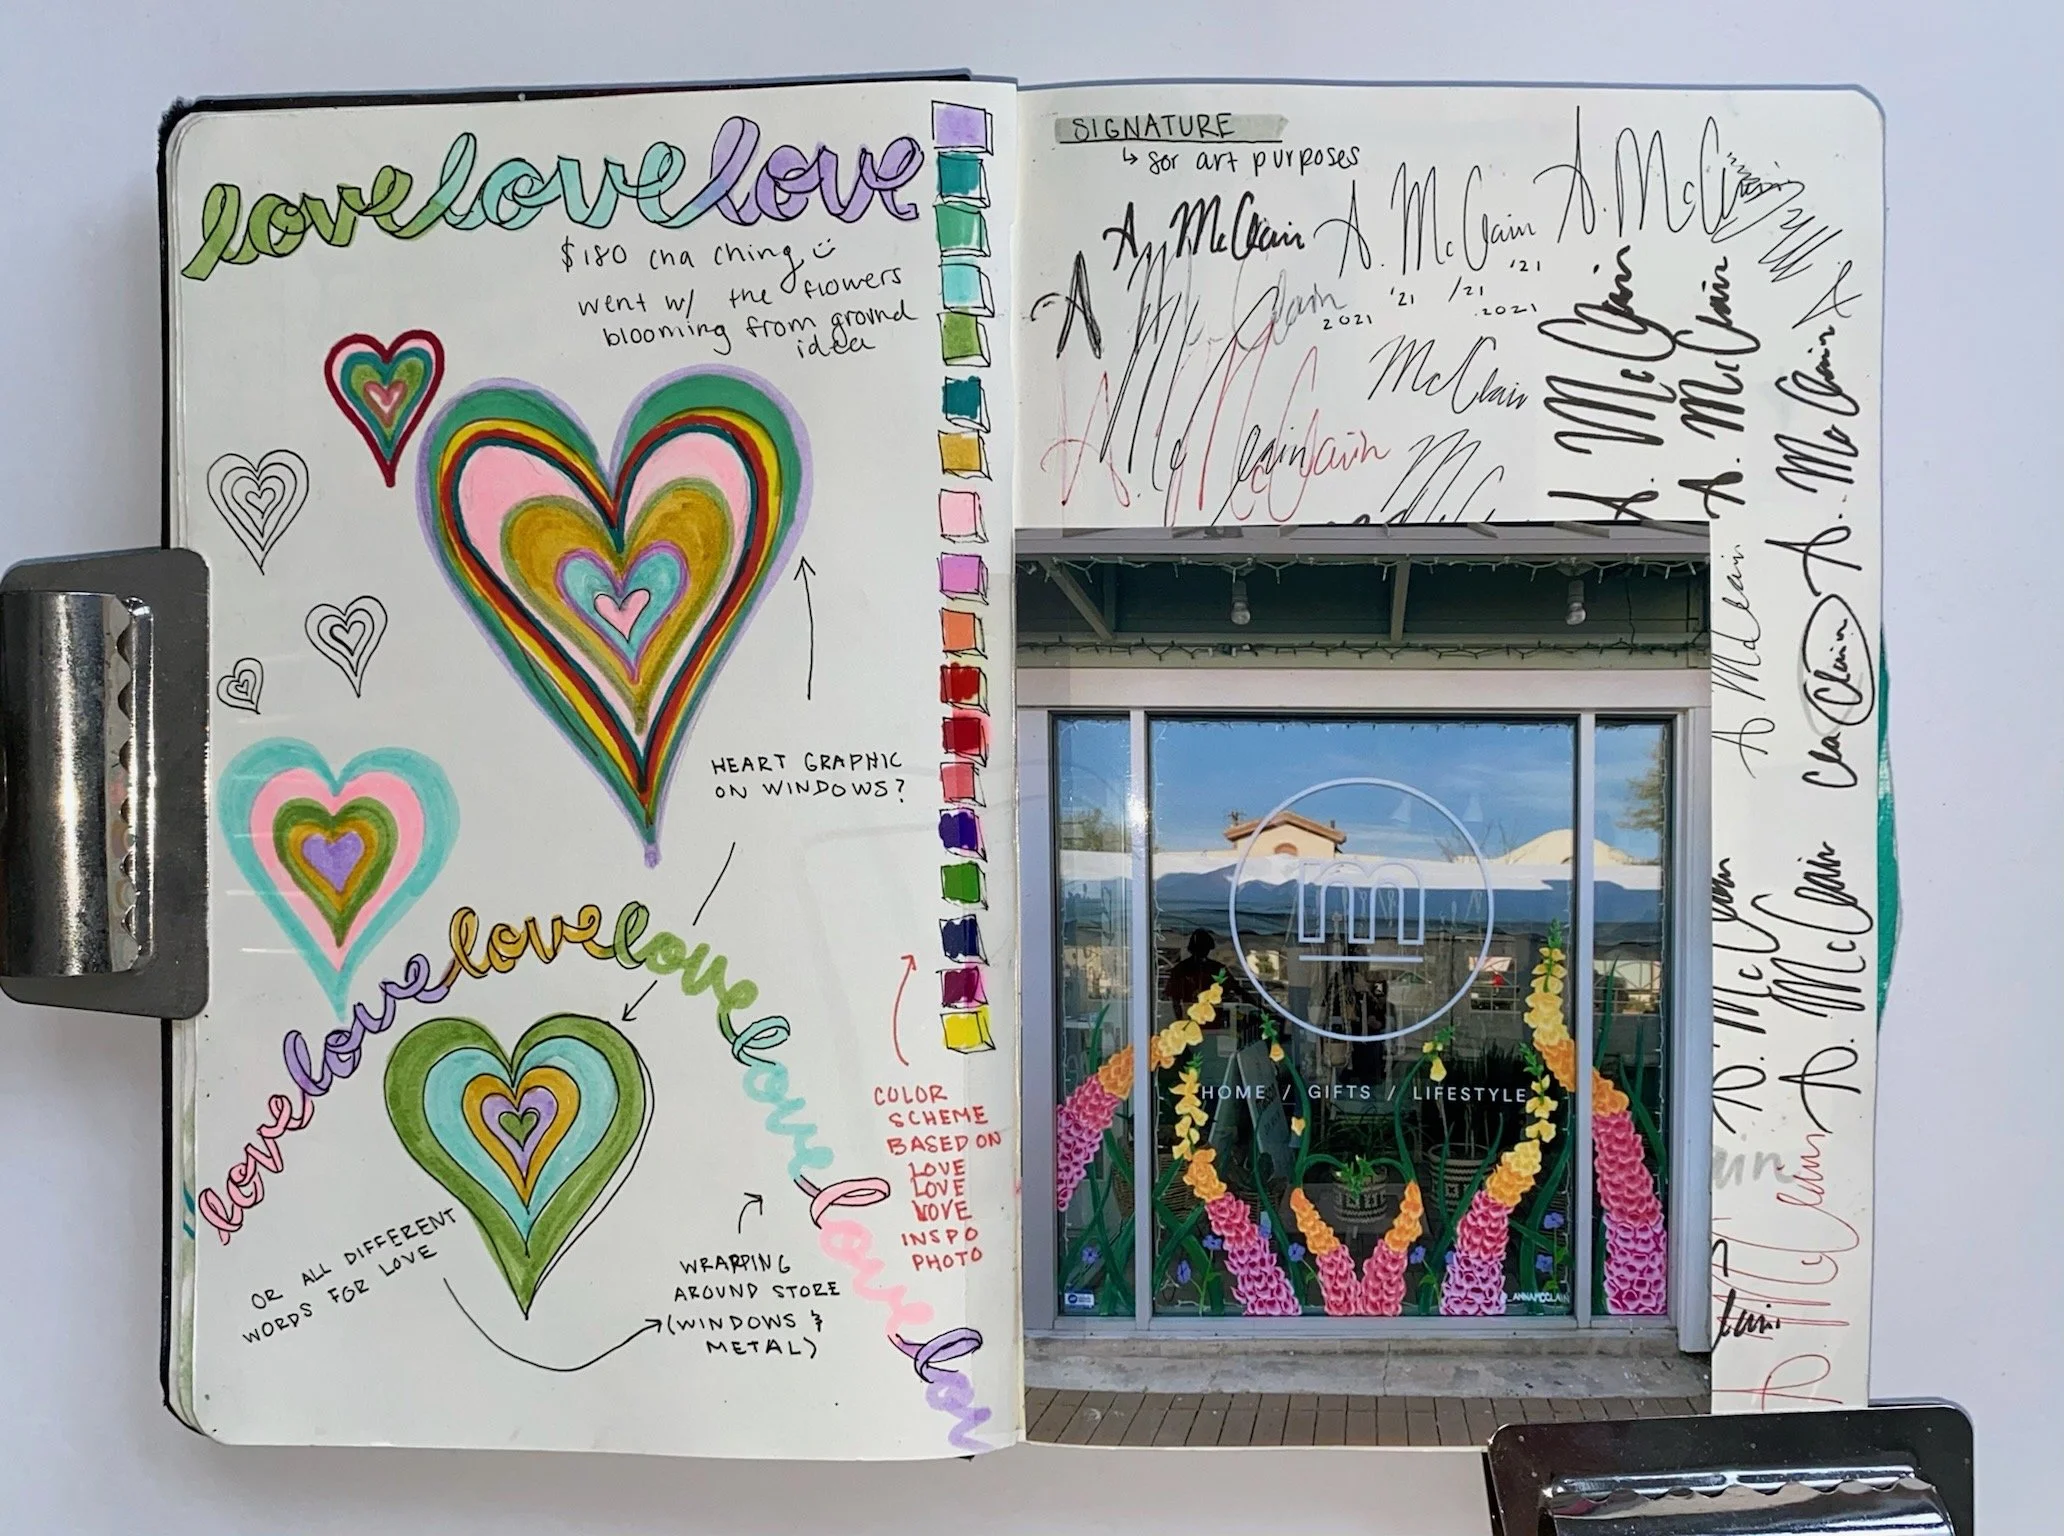 love love love
$180 cha ching
went w/ the flowers
blooming from ground
idea
HEART GRAPHIC
ON WINDOWS?
love love love love love love lov
COLOR
SCHEME
BASED ON
LOVE
LOVE
LOVE
INSPO
PHOTO
OR ALL DIFFERENT
WORDS FOR LOVE
WRAPPING
AROUND STORE
(WINDOWS &
METAL)
SIGNATURE
↳ for art purposes
A. McClain
A. McClain
A. McClain
'21
'21
/21
2021
2021
A
McClain
McClain
A. McClain
A. McClain
A. McClain
A. McClain
A. McClain
A. McClain
A
A McLain
Cla
Clain
A. McClain
A. McClain
ain
A McClain
Clain
m
HOME / GIFTS / LIFESTYLE
_ANNAMCCLAIN